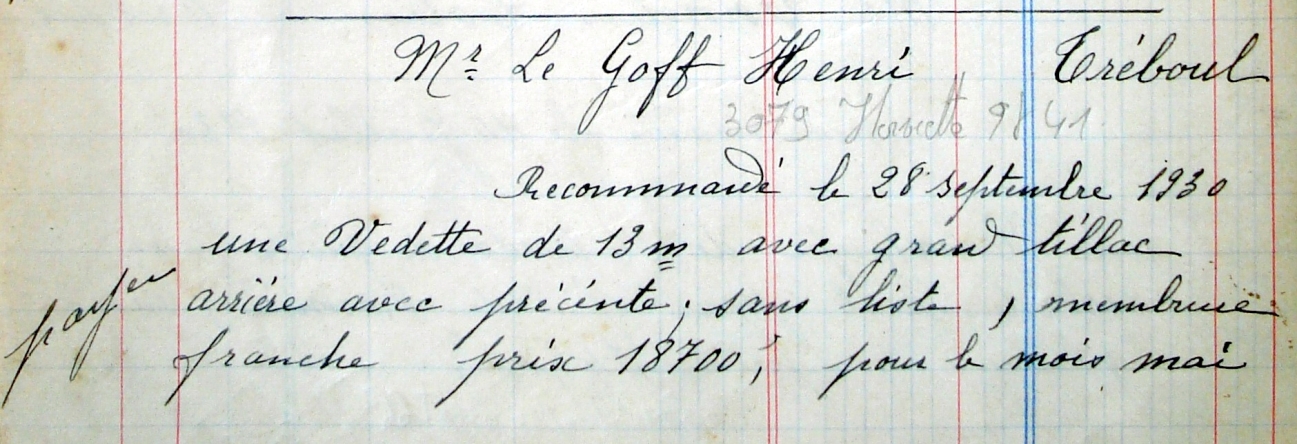 Mr Le Goff Henri Tréboul
3079 Henriette 9841
Recommandé le 28 septembre 1930
une Vedette de 13m avec grand tillac
payer arrière avec précente ; sans liste , membrure
franche prix 18700 ; pour le mois mai